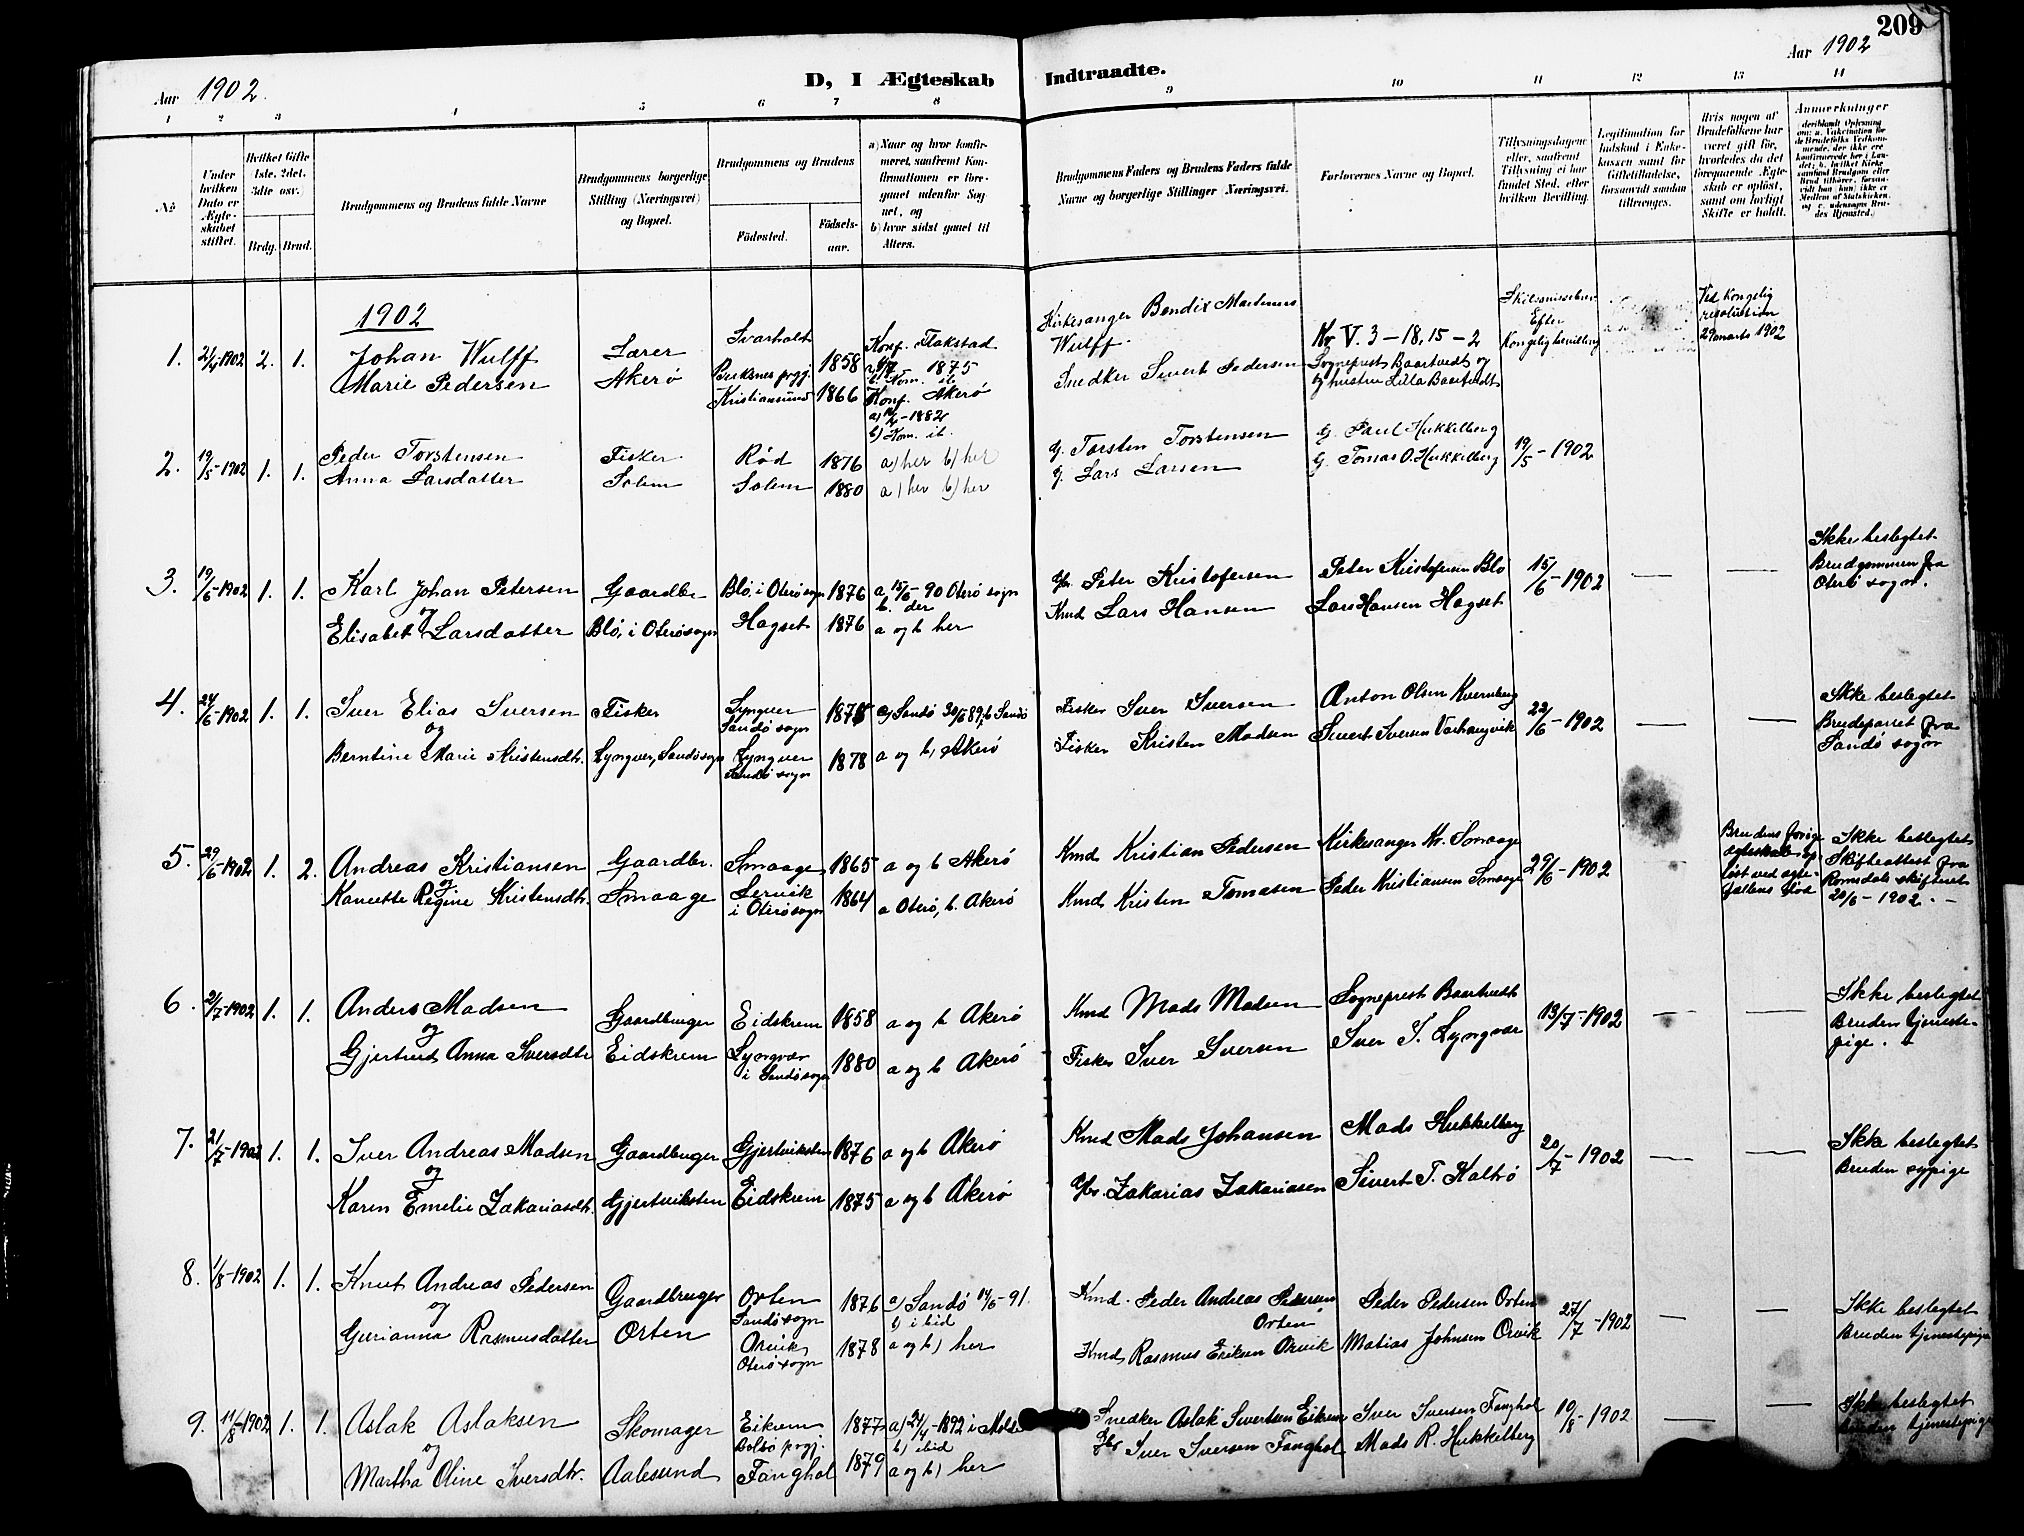 209
Aar 1902.
D, I Ægteskab Indtraadte.
Aar 1902
1 2 3 4 5 6 7 8 9 10 11 12 13 14
No
Under hvilken Dato er Ægteskabet stiftet.
Hvilket Gifte 1ste, 2det, 3die osv.)
Brdg. Brud.
Brudgommens og Brudens fulde Navne
Brudgommens borgerlige Stilling (Næringsvei) og Bopæl.
Brudgommens og Brudens
Fødested.
Fødselsaar.
a) Naar og hvor konfirmeret, saafremt Konfirmationen er foregaaet udenfor Sognet, og
b) hvor sidst gaaet til Alters.
Brudgommens Faders og Brudens Faders fulde Navne og borgerlige Stillinger (Næringsvei.
Forlovernes Navne og Bopæl.
Tillysningsdagene eller, saafremt Tillysning ei har fundet Sted, efter hvilken Bevilling.
Legitimation for Indskud i Enkekassen samt for Giftetilladelse, forsaavidt saadan tiltrænges.
Hvis nogen af Brudefolkene har været gift før, hvorledes da det foregaaende Ægteskab er opløst, samt om lovligt Skifte er holdt.
Anmerkninger
1902
1. 2/4-1902 2. 1. Johan Wulff Lærer Svarholt 1858 Konf. Flakstad 1875 Kirkesanger Bendix Martinus Wulff. Kr V. 3-18, 15-2 Efter Kongelig bevilling Ved Kongelig resolution 29 marts 1902
Marie Pedersen Akerø Kristiansund 1866 Konf. Akerø 1882 b) Kom. ib. Snedker Sivert Pedersen Sogneprest Baartvedt og hustru Lilla Baartvedt
2. 19/5-1902 1. 1. Peder Torstensen Fisker Rød 1876 a) her b) her G. Torsten Torstensen G. Paul Hukkelberg 19/5-1902
Anna Larsdatter Solem Solem 1880 a) her b) her G. Lars Larsen G. Tomas O. Hukkelberg
3. 19/6-1902 1. 1. Karl Johan Petersen Gaardbr Blø, i Oterø sogn 1876 a 15/6-90 Oterø sogn b. der Gbr. Peter Kristofersen Peter Kristofersen Blø 15/6-1902 — — Ikke beslegtet Brudgommen fra Oterø sogn.
og
Elisabet Larsdatter Blø, i Oterøsogn Hagset 1876 a og b her Kmd Lars Hansen Lars Hansen Hagset
4. 24/6-1902 1. 1. Iver Elias Iversen Fisker Lyngver Sandø sogn 1875 a) Sandø 30/6 89, b Sandø Fisker Iver Iversen Anton Olsen Kvernberg 22/6-1902 — — Ikke beslegtet Brudeparret fra Sandø sogn
og
Berntine Marie Kristensdtr. Lyngver, Sandøsogn Lyngver Sandø sogn 1878 a og b, Akerø Fisker Kristen Madsen Sivert Iversen Varhaugvik
5. 29/6-1902 1. 2. Andreas Kristiansen Gaardbr. Smaage 1865 a og b Akerø Kmd Kristian Pedersen Kirkesanger Kr. Smaage 29/6-1902 — Brudens forrige egteskab opløst ved egtefællens død Ikke beslegtet Skifteattest fra Romsdals skifteret 20/6-1902.
og
Hansette Regine Kristensdtr. Smaage Lervik i Oterøsogn 1864 a Oterø, b. Akerø Kmd Kristen Tomasen Peder Kristiansen Smaage
6. 21/7-1902 1. 1. Anders Madsen Gaardbruger Eidskrem 1858 a og b Akerø Kmd Mads Madsen Sogneprest Baartvedt 13/7-1902 — — Ikke beslegtet Bruden tjenestepige.
og
Gjertrud Anna Iversdtr Eidskrem Lyngvær i Sandøsogn 1880 a og b Akerø Fisker Iver Iversen Iver I. Lyngvær
7. 21/7-1902 1. 1. Iver Andreas Madsen Gaardbruger Gjertviksten 1876 a og b Akerø Kmd Mads Johansen Mads Hukkelberg 20/7-1902 — — Ikke beslegtet Bruden sypige
og
Karen Emelie Zakariasdtr. Gjertviksten Eidskrem 1875 a og b Akerø Gbr. Zakarias Zakariasen Sivert T. Kaltrø
8. 1/8-1902 1. 1. Knut Andreas Pedersen Gaardbruger Orten Sandø sogn 1876 a) Sandø 14/6-91. b) ibid Kmd. Peder Andreas Pedersen Orten Peder Pedersen Orten 27/7-1902 — — Ikke beslegtet Bruden tjenestepige
og
Gurianna Rasmusdatter Orten Orvik Oterø sogn 1878 a og b) her Kmd Rasmus Eriksen Orvik Matias Johnsen Orvik
9. 11/8-1902 1. 1. Aslak Aslaksen Skomager Eikrem Bolsø prgj. 1877 a) 24/4-1892 i Molde b) ibid Snedker Aslak Sivertsen Eikrem Iver Iversen Fanghol 10/8-1902 — — Ikke beslegtet Bruden tjenestepige
og
Martha Oline Iversdtr. Aalesund Fanghol 1879 a og b) her Gbr Iver Iversen Fanghol Mads R. Hukkelberg